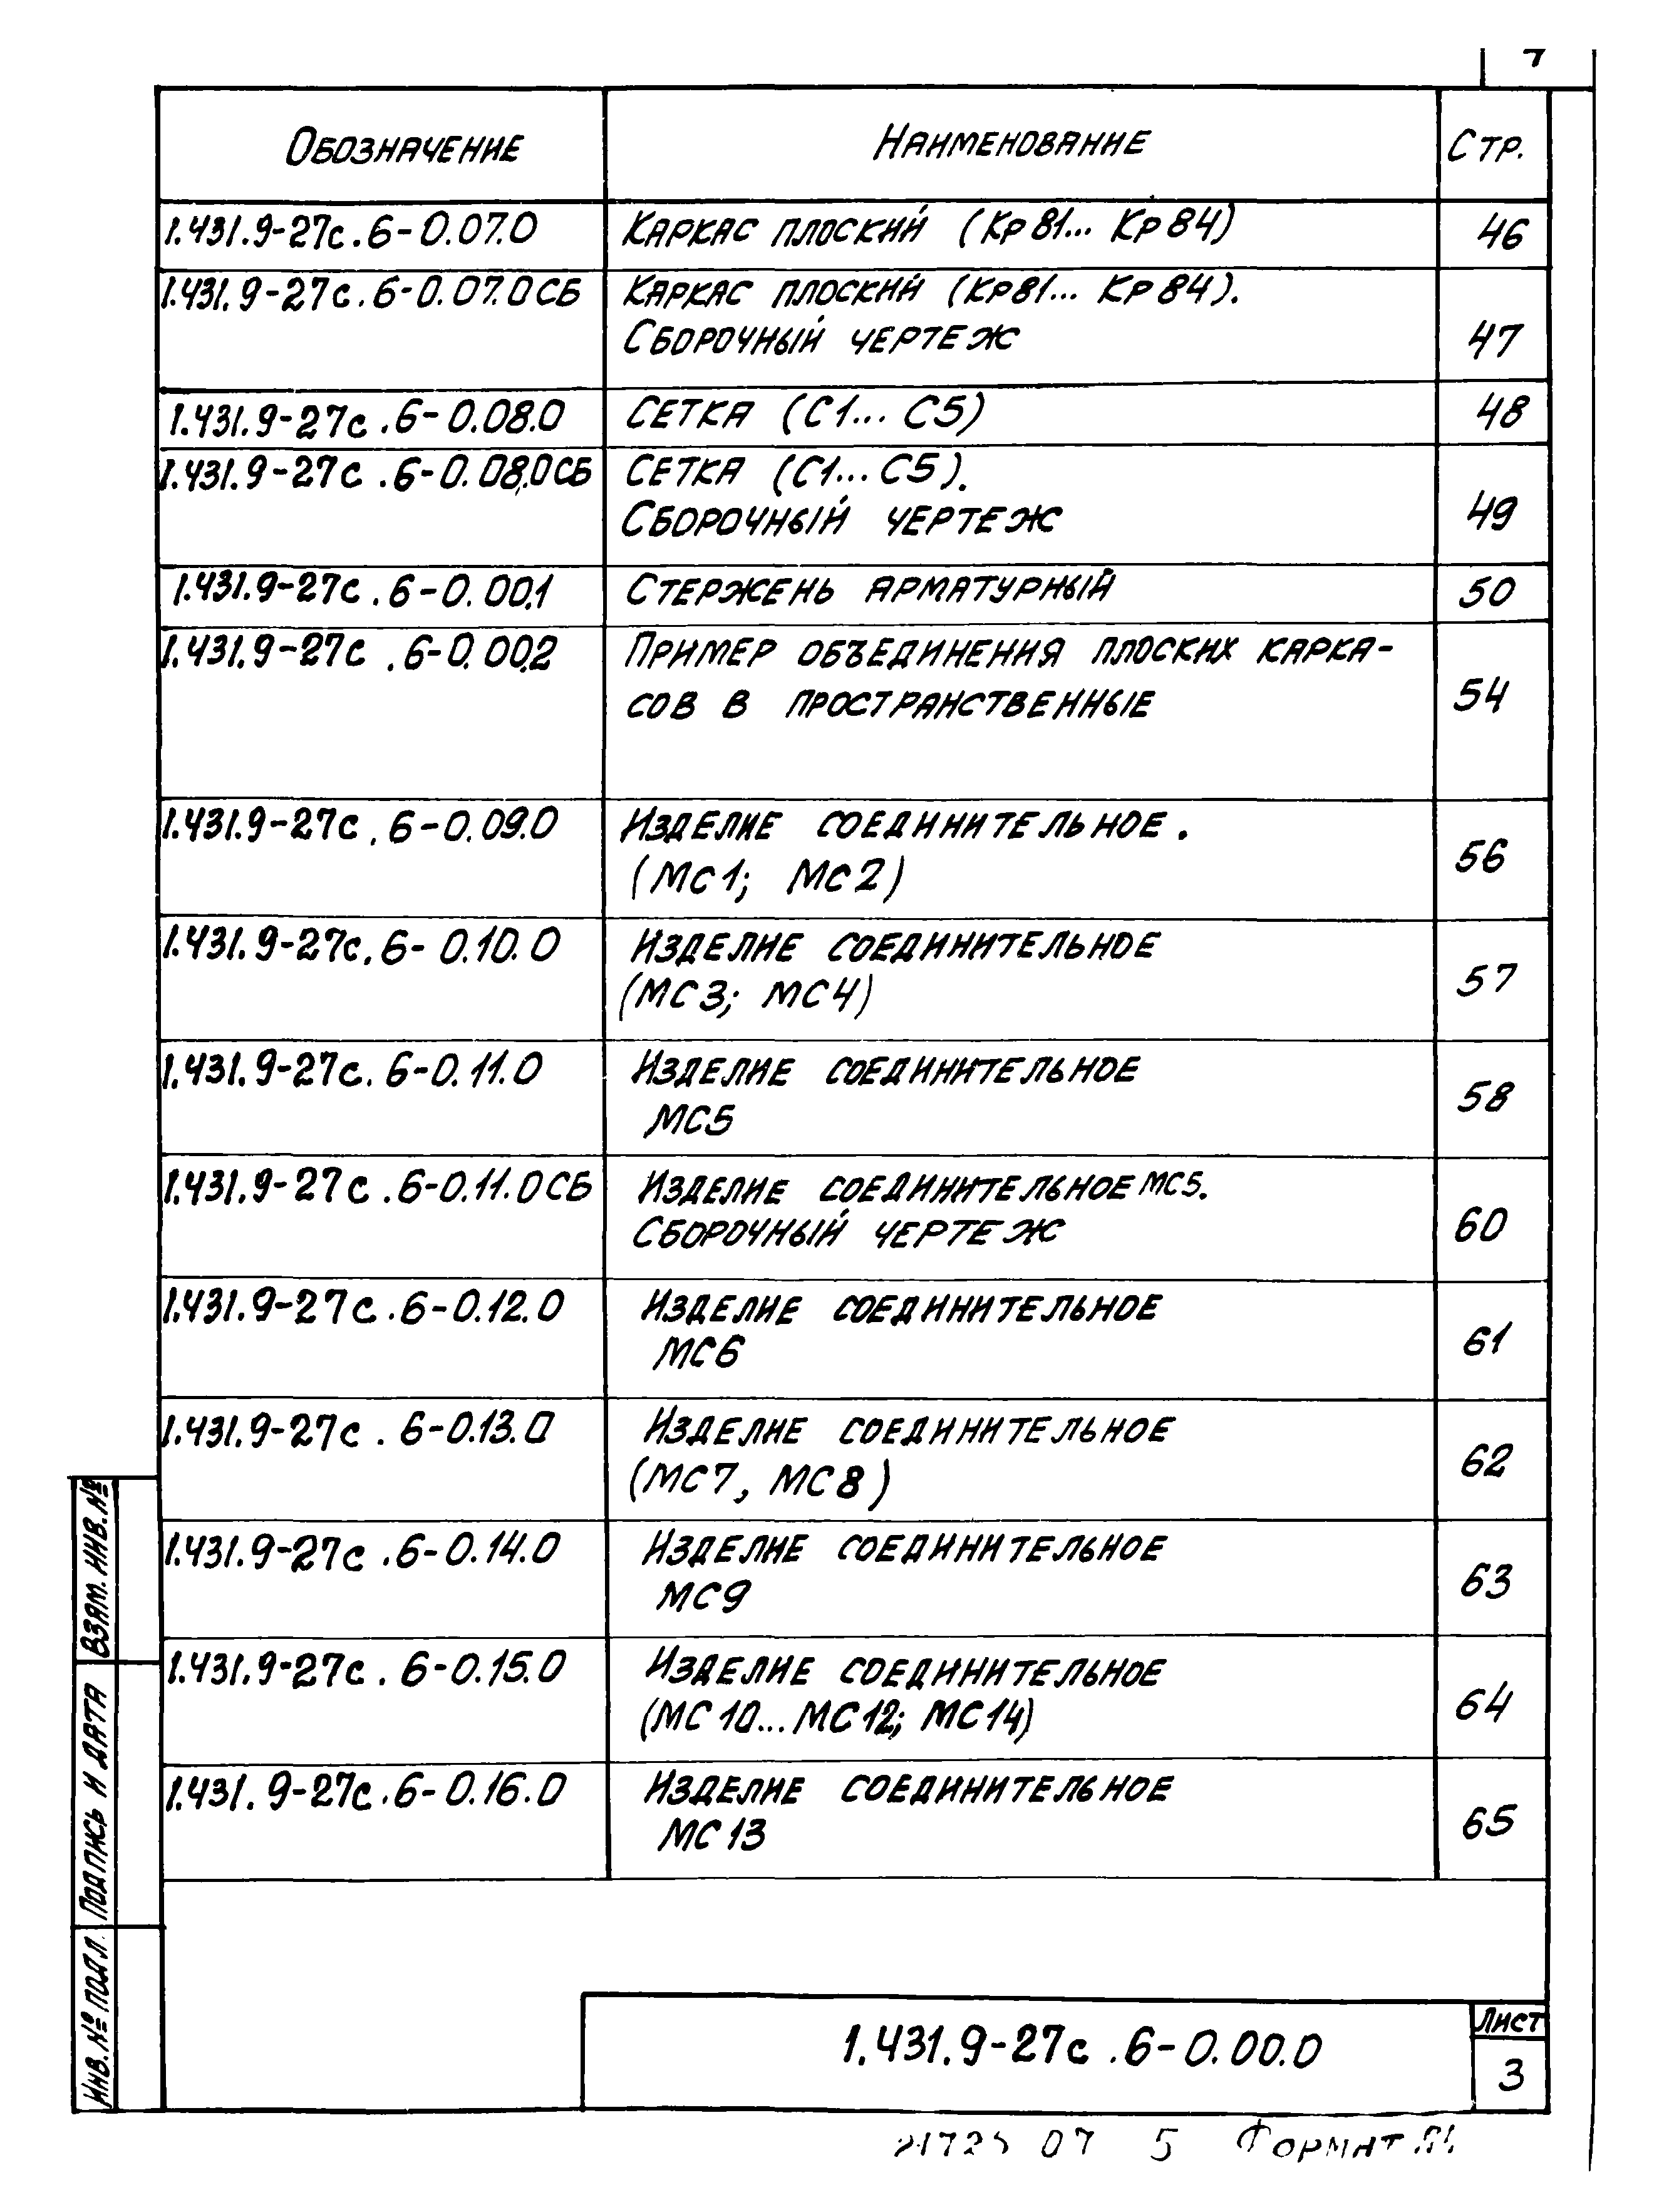 Обозначение Наименование Стр.
1.431.9-27с.6-0.07.0 Каркас плоский (Кр81... Кр84) 46
1.431.9-27с.6-0.07.0СБ Каркас плоский (Кр81... Кр84).
Сборочный чертеж 47
1.431.9-27с.6-0.08.0 Сетка (С1... С5) 48
1.431.9-27с.6-0.08.0СБ Сетка (С1... С5).
Сборочный чертеж 49
1.431.9-27с.6-0.00.1 Стержень арматурный 50
1.431.9-27с.6-0.00.2 Пример объединения плоских карка-
сов в пространственные 54
1.431.9-27с.6-0.09.0 Изделие соединительное.
(МС1; МС2) 56
1.431.9-27с.6-0.10.0 Изделие соединительное
(МС3; МС4) 57
1.431.9-27с.6-0.11.0 Изделие соединительное
МС5 58
1.431.9-27с.6-0.11.0СБ Изделие соединительное МС5.
Сборочный чертеж 60
1.431.9-27с.6-0.12.0 Изделие соединительное
МС6 61
1.431.9-27с.6-0.13.0 Изделие соединительное
(МС7, МС8) 62
1.431.9-27с.6-0.14.0 Изделие соединительное
МС9 63
1.431.9-27с.6-0.15.0 Изделие соединительное
(МС10...МС12; МС14) 64
1.431.9-27с.6-0.16.0 Изделие соединительное
МС13 65
Взам. инв. №
Подпись и дата
Инв. № подл.
1.431.9-27с.6-0.00.0
Лист
3
07 5 Формат